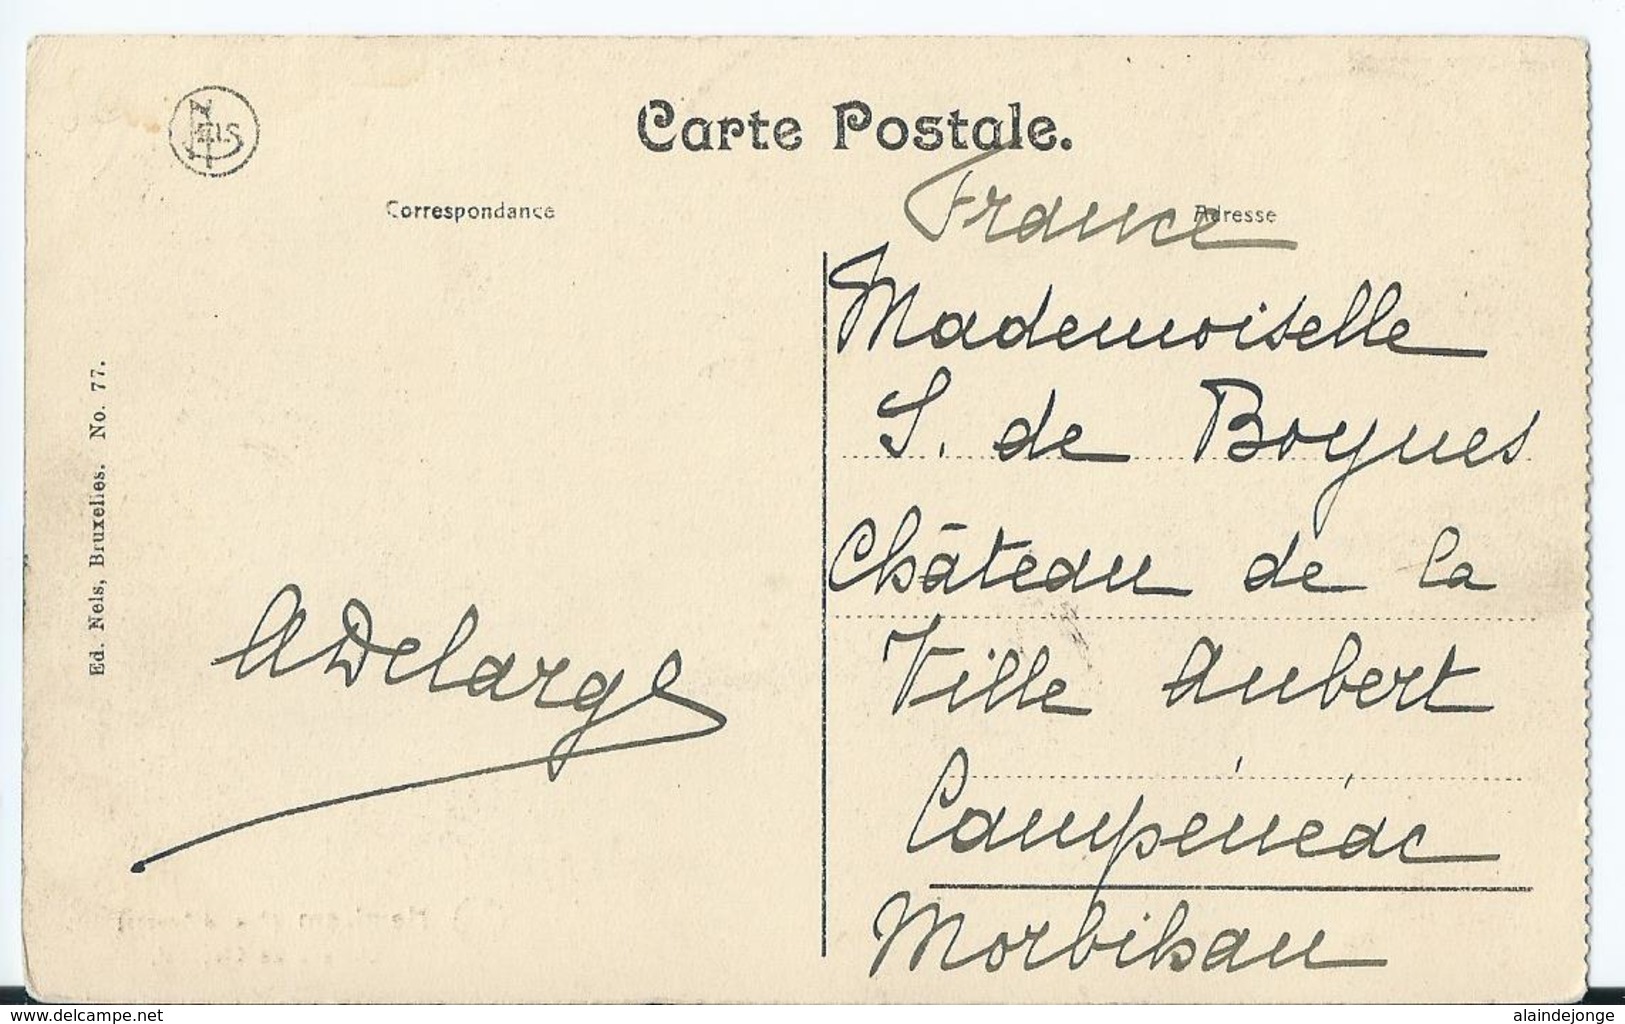 NELS
Carte Postale.
Correspondance
Adresse
France
Mademoiselle
S. de Boynes
Château de la
Ville Aubert
Campénéac
Morbihan
ADelarge
Ed. Nels, Bruxelles. No. 77.
www.delcampe.net
alaindejonge